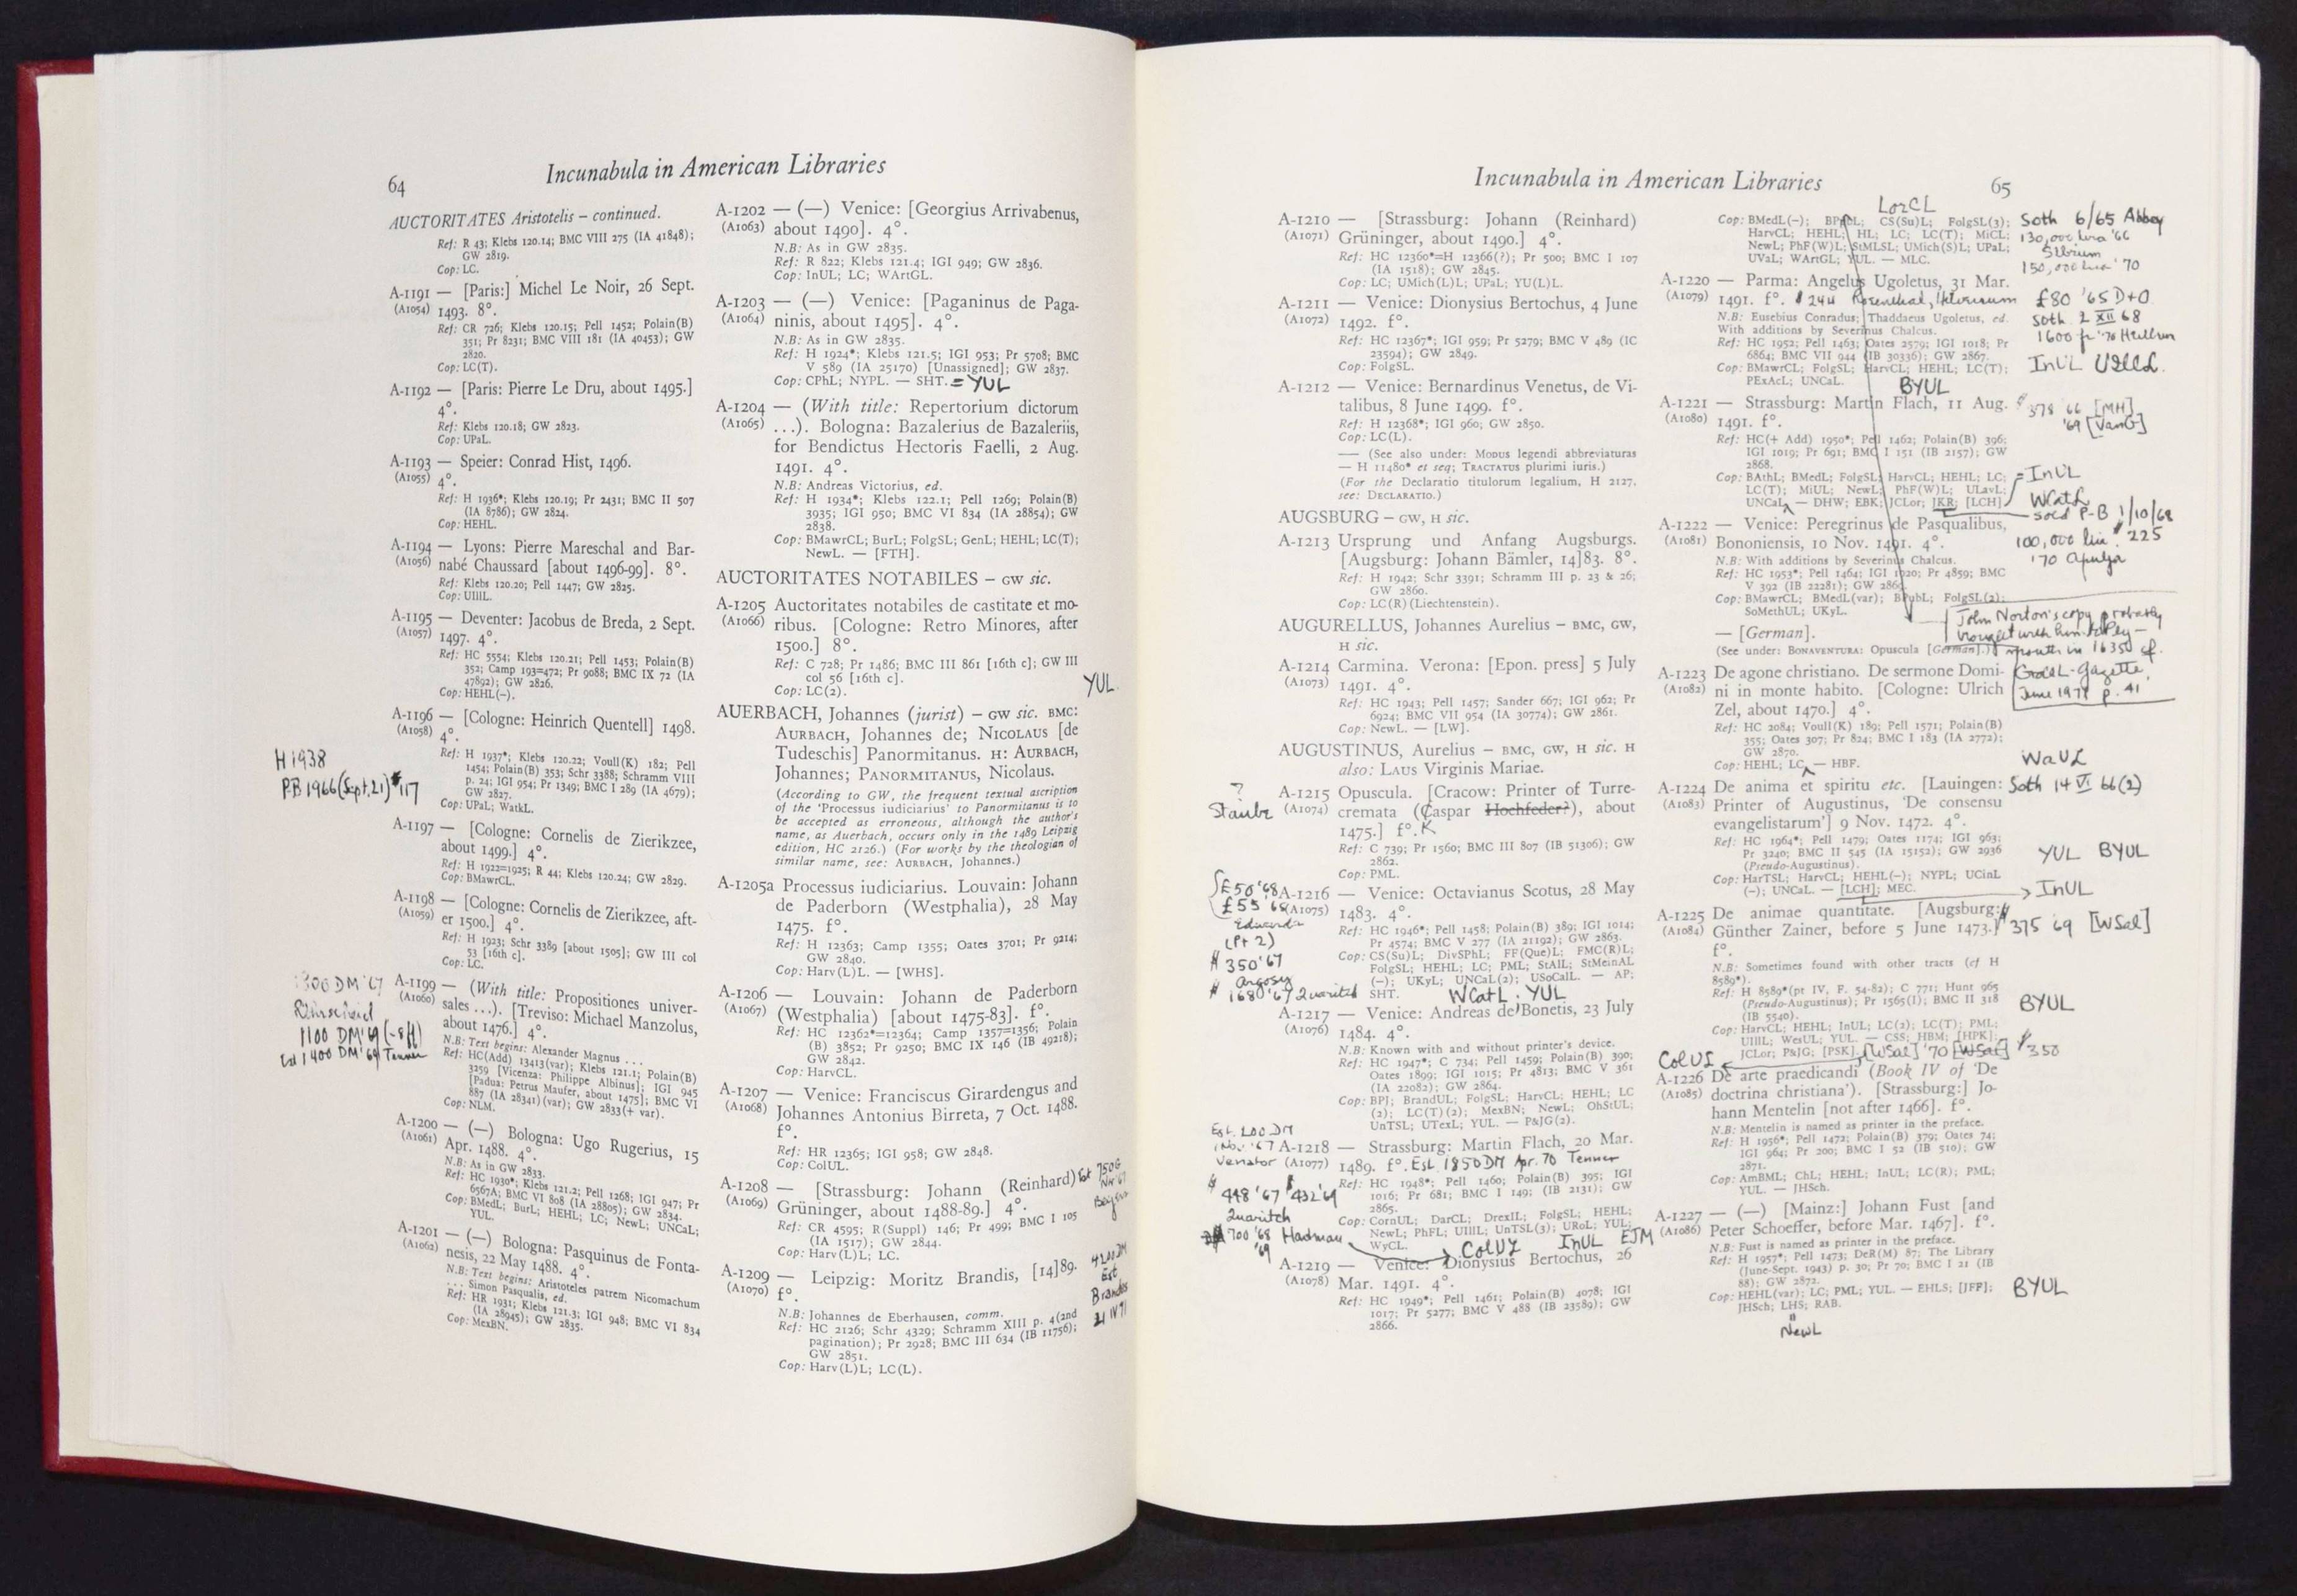 64
Incunabula in American Libraries
AUCTORITATES Aristotelis – continued.
Ref: R 43; Klebs 120.14; BMC VIII 275 (IA 41848);
GW 2819.
Cop: LC.
A-1191 — [Paris:] Michel Le Noir, 26 Sept.
(A1054) 1493. 8°.
Ref: CR 726; Klebs 120.15; Pell 1452; Polain(B)
351; Pr 8231; BMC VIII 181 (IA 40453); GW
2820.
Cop: LC(T).
A-1192 — [Paris: Pierre Le Dru, about 1495.]
4°.
Ref: Klebs 120.18; GW 2823.
Cop: UPaL.
A-1193 — Speier: Conrad Hist, 1496.
(A1055) 4°.
Ref: H 1936*; Klebs 120.19; Pr 2431; BMC II 507
(IA 8786); GW 2824.
Cop: HEHL.
A-1194 — Lyons: Pierre Mareschal and Bar-
(A1056) nabé Chaussard [about 1496-99]. 8°.
Ref: Klebs 120.20; Pell 1447; GW 2825.
Cop: UIllL.
A-1195 — Deventer: Jacobus de Breda, 2 Sept.
(A1057) 1497. 4°.
Ref: HC 5554; Klebs 120.21; Pell 1453; Polain(B)
352; Camp 193=472; Pr 9088; BMC IX 72 (IA
47892); GW 2826.
Cop: HEHL(–).
A-1196 — [Cologne: Heinrich Quentell] 1498.
(A1058) 4°.
Ref: H 1937*; Klebs 120.22; Voull(K) 182; Pell
1454; Polain(B) 353; Schr 3388; Schramm VIII
p. 24; IGI 954; Pr 1349; BMC I 289 (IA 4679);
GW 2827.
Cop: UPaL; WatkL.
H 1938
PB 1966 (Sept. 21) $117
A-1197 — [Cologne: Cornelis de Zierikzee,
about 1499.] 4°.
Ref: H 1922=1925; R 44; Klebs 120.24; GW 2829.
Cop: BMawrCL.
A-1198 — [Cologne: Cornelis de Zierikzee, aft-
(A1059) er 1500.] 4°.
Ref: H 1923; Schr 3389 [about 1505]; GW III col
53 [16th c].
Cop: LC.
A-1199 — (With title: Propositiones univer-
(A1060) sales ...). [Treviso: Michael Manzolus,
about 1476.] 4°.
N.B: Text begins: Alexander Magnus ...
Ref: HC(Add) 13413(var); Klebs 121.1; Polain(B)
3259 [Vicenza: Philippe Albinus]; IGI 945
[Padua: Petrus Maufer, about 1475]; BMC VI
887 (IA 28341)(var); GW 2833(+ var).
Cop: NLM.
300 DM '67
1100 DM '69 (-8ff)
1400 DM '69 Tenner
A-1200 — (—) Bologna: Ugo Rugerius, 15
(A1061) Apr. 1488. 4°.
N.B: As in GW 2833.
Ref: HC 1930*; Klebs 121.2; Pell 1268; IGI 947; Pr
6567A; BMC VI 808 (IA 28805); GW 2834.
Cop: BMedL; BurL; HEHL; LC; NewL; UNCaL;
YUL.
A-1201 — (—) Bologna: Pasquinus de Fonta-
(A1062) nesis, 22 May 1488. 4°.
N.B: Text begins: Aristoteles patrem Nicomachum
... Simon Pasqualis, ed.
Ref: HR 1931; Klebs 121.3; IGI 948; BMC VI 834
(IA 28945); GW 2835.
Cop: MexBN.
A-1202 — (—) Venice: [Georgius Arrivabenus,
(A1063) about 1490]. 4°.
N.B: As in GW 2835.
Ref: R 822; Klebs 121.4; IGI 949; GW 2836.
Cop: InUL; LC; WArtGL.
A-1203 — (—) Venice: [Paganinus de Paga-
(A1064) ninis, about 1495]. 4°.
N.B: As in GW 2835.
Ref: H 1924*; Klebs 121.5; IGI 953; Pr 5708; BMC
V 589 (IA 25170) [Unassigned]; GW 2837.
Cop: CPhL; NYPL. — SHT. = YUL
A-1204 — (With title: Repertorium dictorum
(A1065) ...). Bologna: Bazalerius de Bazaleriis,
for Bendictus Hectoris Faelli, 2 Aug.
1491. 4°.
N.B: Andreas Victorius, ed.
Ref: H 1934*; Klebs 122.1; Pell 1269; Polain(B)
3935; IGI 950; BMC VI 834 (IA 28854); GW
2838.
Cop: BMawrCL; BurL; FolgSL; GenL; HEHL; LC(T);
NewL. — [FTH].
AUCTORITATES NOTABILES – GW sic.
A-1205 Auctoritates notabiles de castitate et mo-
(A1066) ribus. [Cologne: Retro Minores, after
1500.] 8°.
Ref: C 728; Pr 1486; BMC III 861 [16th c]; GW III
col 56 [16th c].
Cop: LC(2).
YUL
AUERBACH, Johannes (jurist) – GW sic. BMC:
AURBACH, Johannes de; NICOLAUS [de
Tudeschis] Panormitanus. H: AURBACH,
Johannes; PANORMITANUS, Nicolaus.
(According to GW, the frequent textual ascription
of the 'Processus iudiciarius' to Panormitanus is to
be accepted as erroneous, although the author's
name, as Auerbach, occurs only in the 1489 Leipzig
edition, HC 2126.) (For works by the theologian of
similar name, see: AURBACH, Johannes.)
A-1205a Processus iudiciarius. Louvain: Johann
de Paderborn (Westphalia), 28 May
1475. f°.
Ref: H 12363; Camp 1355; Oates 3701; Pr 9214;
GW 2840.
Cop: Harv(L)L. — [WHS].
A-1206 — Louvain: Johann de Paderborn
(A1067) (Westphalia) [about 1475-83]. f°.
Ref: HC 12362*=12364; Camp 1357=1356; Polain
(B) 3852; Pr 9250; BMC IX 146 (IB 49218);
GW 2842.
Cop: HarvCL.
A-1207 — Venice: Franciscus Girardengus and
(A1068) Johannes Antonius Birreta, 7 Oct. 1488.
f°.
Ref: HR 12365; IGI 958; GW 2848.
Cop: ColUL.
A-1208 — [Strassburg: Johann (Reinhard)
(A1069) Grüninger, about 1488-89.] 4°.
Ref: CR 4595; R(Suppl) 146; Pr 499; BMC I 105
(IA 1517); GW 2844.
Cop: Harv(L)L; LC.
A-1209 — Leipzig: Moritz Brandis, [14]89.
(A1070) f°.
N.B: Johannes de Eberhausen, comm.
Ref: HC 2126; Schr 4329; Schramm XIII p. 4(2nd
pagination); Pr 2928; BMC III 634 (IB 11756);
GW 2851.
Cop: Harv(L)L; LC(L).
4200 DM
Est
Brandes
21 IV 71
Incunabula in American Libraries
65
A-1210 — [Strassburg: Johann (Reinhard)
(A1071) Grüninger, about 1490.] 4°.
Ref: HC 12360*=H 12366(?); Pr 500; BMC I 107
(IA 1518); GW 2845.
Cop: LC; UMich(L)L; UPaL; YU(L)L.
A-1211 — Venice: Dionysius Bertochus, 4 June
(A1072) 1492. f°.
Ref: HC 12367*; IGI 959; Pr 5279; BMC V 489 (IC
23594); GW 2849.
Cop: FolgSL.
A-1212 — Venice: Bernardinus Venetus, de Vi-
talibus, 8 June 1499. f°.
Ref: H 12368*; IGI 960; GW 2850.
Cop: LC(L).
—— (See also under: MODUS legendi abbreviaturas
— H 11480* et seq; TRACTATUS plurimi iuris.)
(For the Declaratio titulorum legalium, H 2127,
see: DECLARATIO.)
AUGSBURG – GW, H sic.
A-1213 Ursprung und Anfang Augsburgs.
[Augsburg: Johann Bämler, 14]83. 8°.
Ref: H 1942; Schr 3391; Schramm III p. 23 & 26;
GW 2860.
Cop: LC(R)(Liechtenstein).
AUGURELLUS, Johannes Aurelius – BMC, GW,
H sic.
A-1214 Carmina. Verona: [Epon. press] 5 July
(A1073) 1491. 4°.
Ref: HC 1943; Pell 1457; Sander 667; IGI 962; Pr
6924; BMC VII 954 (IA 30774); GW 2861.
Cop: NewL. — [LW].
AUGUSTINUS, Aurelius – BMC, GW, H sic. H
also: LAUS Virginis Mariae.
A-1215 Opuscula. [Cracow: Printer of Turre-
(A1074) cremata (Caspar Hochfeder?), about
1475.] f°. K
Ref: C 739; Pr 1560; BMC III 807 (IB 51306); GW
2862.
Cop: PML.
?
Straube
A-1216 — Venice: Octavianus Scotus, 28 May
(A1075) 1483. 4°.
Ref: HC 1946*; Pell 1458; Polain(B) 389; IGI 1014;
Pr 4574; BMC V 277 (IA 21192); GW 2863.
Cop: CS(Su)L; DivSPhL; FF(Que)L; FMC(R)L;
FolgSL; HEHL; LC; PML; StAlL; StMeinAL
(–); UKyL; UNCaL(2); USoCalL. — AP;
SHT. WCatL. YUL
£50 '68
£55 '68
Edwards
(Pt 2)
$350 '67
Argosy
$168 '67 Quaritch
A-1217 — Venice: Andreas de Bonetis, 23 July
(A1076) 1484. 4°.
N.B: Known with and without printer's device.
Ref: HC 1947*; C 734; Pell 1459; Polain(B) 390;
Oates 1899; IGI 1015; Pr 4813; BMC V 361
(IA 22082); GW 2864.
Cop: BPJ; BrandUL; FolgSL; HarvCL; HEHL; LC
(2); LC(T)(2); MexBN; NewL; OhStUL;
UnTSL; UTexL; YUL. — P&JG(2).
A-1218 — Strassburg: Martin Flach, 20 Mar.
(A1077) 1489. f°. Est. 1850 DM Apr. 70 Tenner
Ref: HC 1948*; Pell 1460; Polain(B) 395; IGI
1016; Pr 681; BMC I 149; (IB 2131); GW
2865.
Cop: CornUL; DarCL; DrexIL; FolgSL; HEHL;
NewL; PhFL; UIllL; UnTSL(3); URoL; YUL;
WyCL. ColUL InUL EJM
Venator
$448 '67 $432 '69
Quaritch
700 '68 Hartman
'69
A-1219 — Venice: Dionysius Bertochus, 26
(A1078) Mar. 1491. 4°.
Ref: HC 1949*; Pell 1461; Polain(B) 4078; IGI
1017; Pr 5277; BMC V 488 (IB 23589); GW
2866.
Cop: BMedL(–); BPubL; CS(Su)L; FolgSL(3);
HarvCL; HEHL; HL; LC; LC(T); MiCL;
NewL; PhF(W)L; StMLSL; UMich(S)L; UPaL;
UVaL; WArtGL; YUL. — MLC.
Soth 6/65 Abbey
130,000 lira '66
150,000 lira '70
A-1220 — Parma: Angelus Ugoletus, 31 Mar.
(A1079) 1491. f°.
N.B: Eusebius Conradus; Thaddaeus Ugoletus, ed.
With additions by Severinus Chalcus.
Ref: HC 1952; Pell 1463; Oates 2579; IGI 1018; Pr
6864; BMC VII 944 (IB 30336); GW 2867.
Cop: BMawrCL; FolgSL; HarvCL; HEHL; LC(T);
PExAcL; UNCaL. BYUL
£80 '65 D+O
Soth 2 XII 68
InUL
A-1221 — Strassburg: Martin Flach, 11 Aug.
(A1080) 1491. f°.
Ref: HC(+ Add) 1950*; Pell 1462; Polain(B) 396;
IGI 1019; Pr 691; BMC I 151 (IB 2157); GW
2868.
Cop: BAthL; BMedL; FolgSL; HarvCL; HEHL; LC;
LC(T); MiUL; NewL; PhF(W)L; ULavL;
UNCaL. — DHW; EBK; JCLor; JKR; [LCH]
$378 66 [MH]
'69 [VanG]
= InUL
WCatL
sold P-B 1/10/68
$225
A-1222 — Venice: Peregrinus de Pasqualibus,
(A1081) Bononiensis, 10 Nov. 1491. 4°.
N.B: With additions by Severinus Chalcus.
Ref: HC 1953*; Pell 1464; IGI 1020; Pr 4859; BMC
V 392 (IB 22281); GW 2869.
Cop: BMawrCL; BMedL(var); BPubL; FolgSL(2);
SoMethUL; UKyL.
100,000 lire
'70
John Norton's copy probably
— [German].
(See under: BONAVENTURA: Opuscula [German].)
A-1223 De agone christiano. De sermone Domi-
(A1082) ni in monte habito. [Cologne: Ulrich
Zel, about 1470.] 4°.
Ref: HC 2084; Voull(K) 189; Pell 1571; Polain(B)
355; Oates 307; Pr 824; BMC I 183 (IA 2772);
GW 2870.
Cop: HEHL; LC. — HBF.
WaUL
A-1224 De anima et spiritu etc. [Lauingen:
(A1083) Printer of Augustinus, 'De consensu
evangelistarum'] 9 Nov. 1472. 4°.
Ref: HC 1964*; Pell 1479; Oates 1174; IGI 963;
Pr 3240; BMC II 545 (IA 15152); GW 2936
(Pseudo-Augustinus).
Cop: HarTSL; HarvCL; HEHL(–); NYPL; UCinL
(–); UNCaL. — [LCH]; MEC.
Soth 14 VI 66 (2)
YUL BYUL
InUL
A-1225 De animae quantitate. [Augsburg:
(A1084) Günther Zainer, before 5 June 1473.]
f°.
N.B: Sometimes found with other tracts (cf H
8589*).
Ref: H 8589*(pt IV, F. 54-82); C 771; Hunt 965
(Pseudo-Augustinus); Pr 1565(I); BMC II 318
(IB 5540).
Cop: HarvCL; HEHL; InUL; LC(2); LC(T); PML;
UIllL; WesUL; YUL. — CSS; HBM; [HPK];
JCLor; P&JG; [PSK]. [WSal] '70 [WSal] $350
$375 '69 [WSal]
BYUL
ColUL
A-1226 De arte praedicandi (Book IV of 'De
(A1085) doctrina christiana'). [Strassburg:] Jo-
hann Mentelin [not after 1466]. f°.
N.B: Mentelin is named as printer in the preface.
Ref: H 1956*; Pell 1472; Polain(B) 379; Oates 74;
IGI 964; Pr 200; BMC I 52 (IB 510); GW
2871.
Cop: AmBML; ChL; HEHL; InUL; LC(R); PML;
YUL. — JHSch.
A-1227 — (—) [Mainz:] Johann Fust [and
(A1086) Peter Schoeffer, before Mar. 1467]. f°.
N.B: Fust is named as printer in the preface.
Ref: H 1957*; Pell 1473; DeR(M) 87; The Library
(June-Sept. 1943) p. 30; Pr 70; BMC I 21 (IB
88); GW 2872.
Cop: HEHL(var); LC; PML; YUL. — EHLS; [JFF];
JHSch; LHS; RAB.
BYUL
NewL